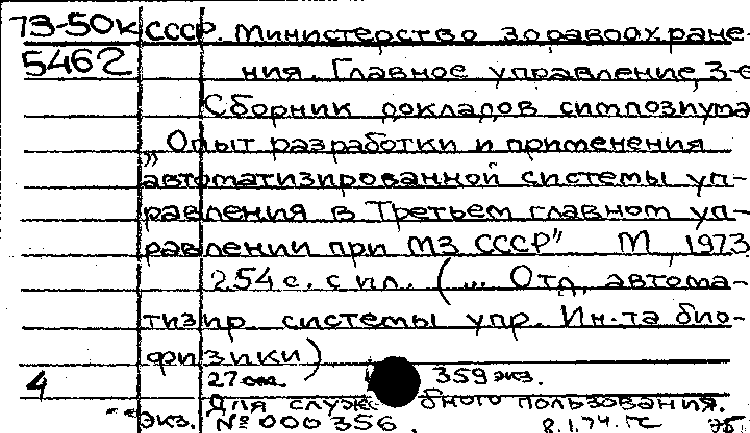 73-50к СССР. Министерство здравоохране-
5462 ния. Главное управление, 3-е
Сборник докладов симпозиума
„Опыт разработки и применения
автоматизированной системы уп-
равления в Третьем главном уп-
равлении при МЗ СССР" М, 1973
254 с. с ил. (... Отд. автома-
тизир системы упр. Ин-та био-
физики)
4 27 см. 359 экз.
Для служебного пользования.
Экз. № 000356. 8.1.74. ГС